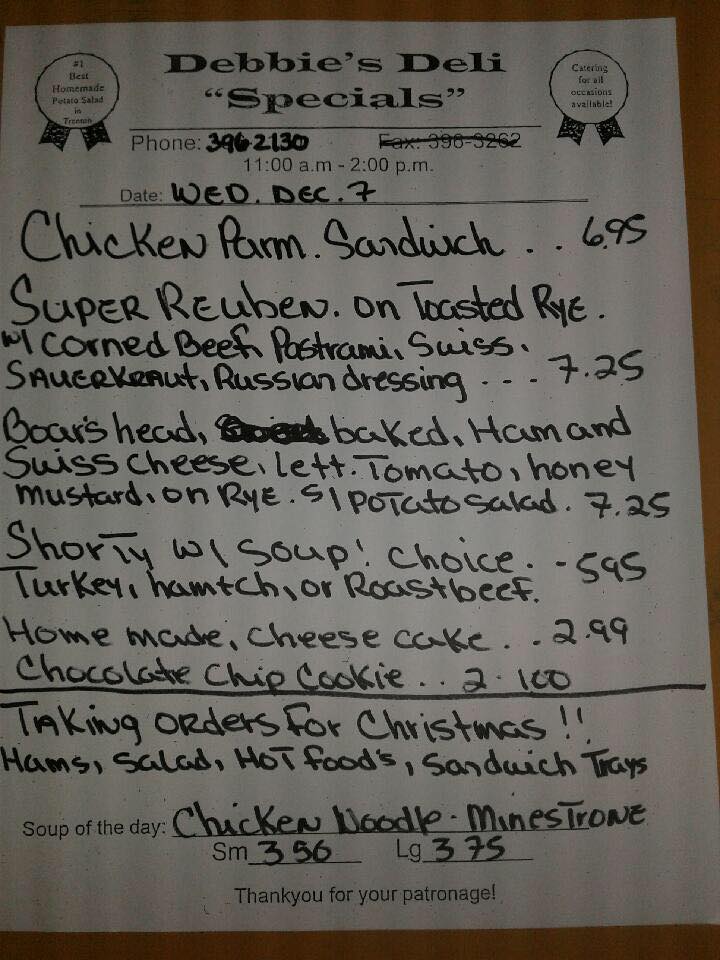 #1
Best
Homemade
Potato Salad
in
Trenton
Debbie's Deli
"Specials"
Catering
for all
occasions
available!
Phone: 396 2130 Fax: 396-3262
11:00 a.m - 2:00 p.m.
Date: WED. DEC. 7
Chicken Parm. Sandwich . . 6.95
Super Reuben. on Toasted Rye.
w/ Corned Beef, Pastrami, Swiss.
Sauerkraut, Russian dressing - - - . 7.25
Boar's head, baked, Ham and
Swiss cheese, lett. Tomato, honey
mustard. on Rye. S/ Potato Salad. 7.25
Shorty w/ Soup! choice. - 595
Turkey, ham+ch, or Roastbeef.
Home made, cheese cake . . . 2.99
Chocolate Chip Cookie . . 2. 100
Taking orders for Christmas !!
Hams, Salad, Hot food's, Sandwich Trays
Soup of the day: Chicken Noodle - Minestrone
Sm 3 50 Lg 3 75
Thankyou for your patronage!